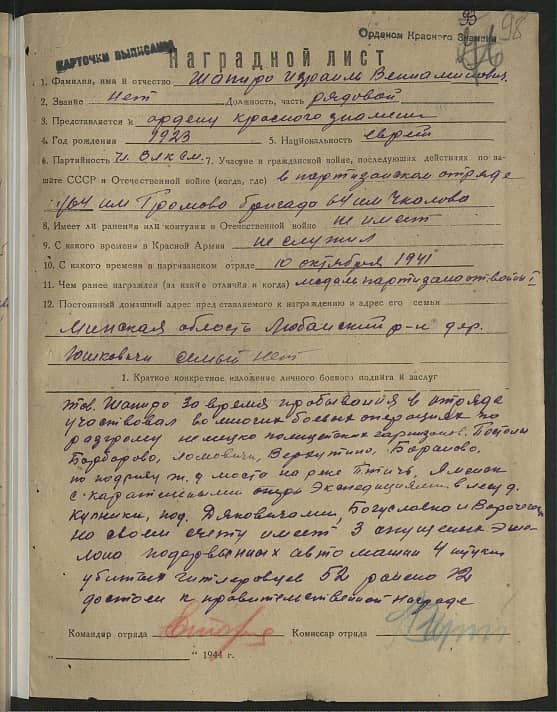 93
98
Орденом Красного Знамени
КАРТОЧКИ ВЫПИСАНЫ
Наградной лист
1. Фамилия, имя и отчество Шапиро Израиль Вениаминович
2. Звание нет Должность, часть рядовой
3. Представляется к ордену красного знамени
4. Год рождения 1923 5. Национальность еврей
6. Партийность чл. ВЛКСМ. 7. Участие в гражданской войне, последующих действиях по за-
щите СССР и Отечественной войне (когда, где) в партизанском отряде
им Громова бригада 64 им Чкалова
8. Имеет ли ранения или контузии в Отечественной войне не имеет
9. С какого времени в Красной Армии не служил
10. С какого времени в партизанском отряде 10 октября 1941
11. Чем ранее награжден (за какие отличия и когда) медаль партизана отвойны I
12. Постоянный домашний адрес представляемого к награждению и адрес его семьи
Минская область Любанский р-н дер.
Юшковичи семьи нет
1. Краткое конкретное изложение личного боевого подвига и заслуг
Тов. Шапиро за время пребывания в отряде
участвовал во многих боевых операциях по
разгрому немецко полицейских гарнизонов.
Барбарово, Ломовичи, Веркутино, Бараново,
по подрыву ж.д моста на реке Птичь,
с карательными Экспедициями в лесу д.
под. Дяковичами,
на своем счету имеет 3 спущеных Эше-
лона подорванных авто машин 4 штуки
убитых гитлеровцев 52 ранено 72
достоен к правительственной награде
Командир отряда Комиссар отряда
" " 1944 г.